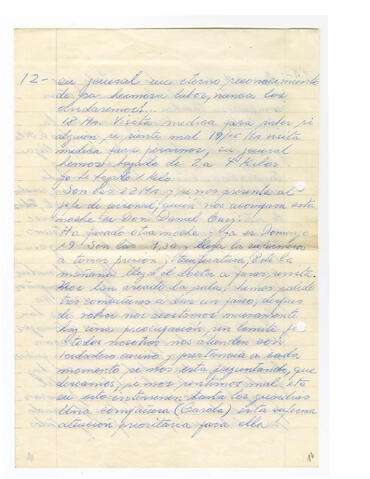 12- en general un eterno reconocimiento
de su hermosa labor, nunca los
olvidaremos!...
18 Hrs. Visita medica para saber si
alguien se siente mal 19/00 Hrs visita
medica para pesarnos, en general
hemos bajado de 2 a 4 kilos
yo he bajado 4 kilos
Son las 22 Hrs, y se nos presenta el
jefe de personal, quien nos acompaña esta
noche es Don Daniel
Ha pasado otra noche, ya es Domingo
19! Son las 7,30 y llega la enfermera
a tomar presión, temperatura, 8 de la
mañana llega el doctor a pasar visita.
Nos han aseado la sala! hemos salido
tres compañeras a dar un paseo, despues
de volver nos acostamos nuevamente
hay una preocupación, sin limite por
todos nosotros nos atienden con
verdadero cariño, y a cada
momento se nos esta preguntando, que
deseamos, si nos sentimos mal etc
en esto intervienen hasta los guardias
Una compañera (Carola) esta enferma
atención prioritaria para ella